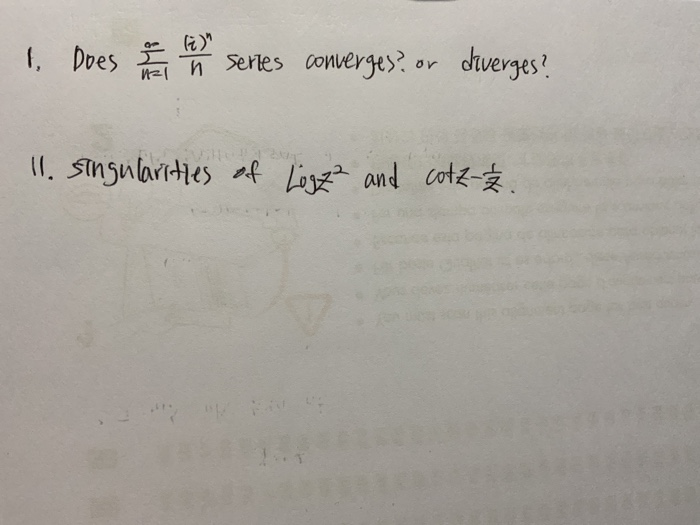 I. Does ∞∑n=1 (i)ⁿ/n series converges? or diverges?
II. singularities of Log z² and cot z - 1/z.